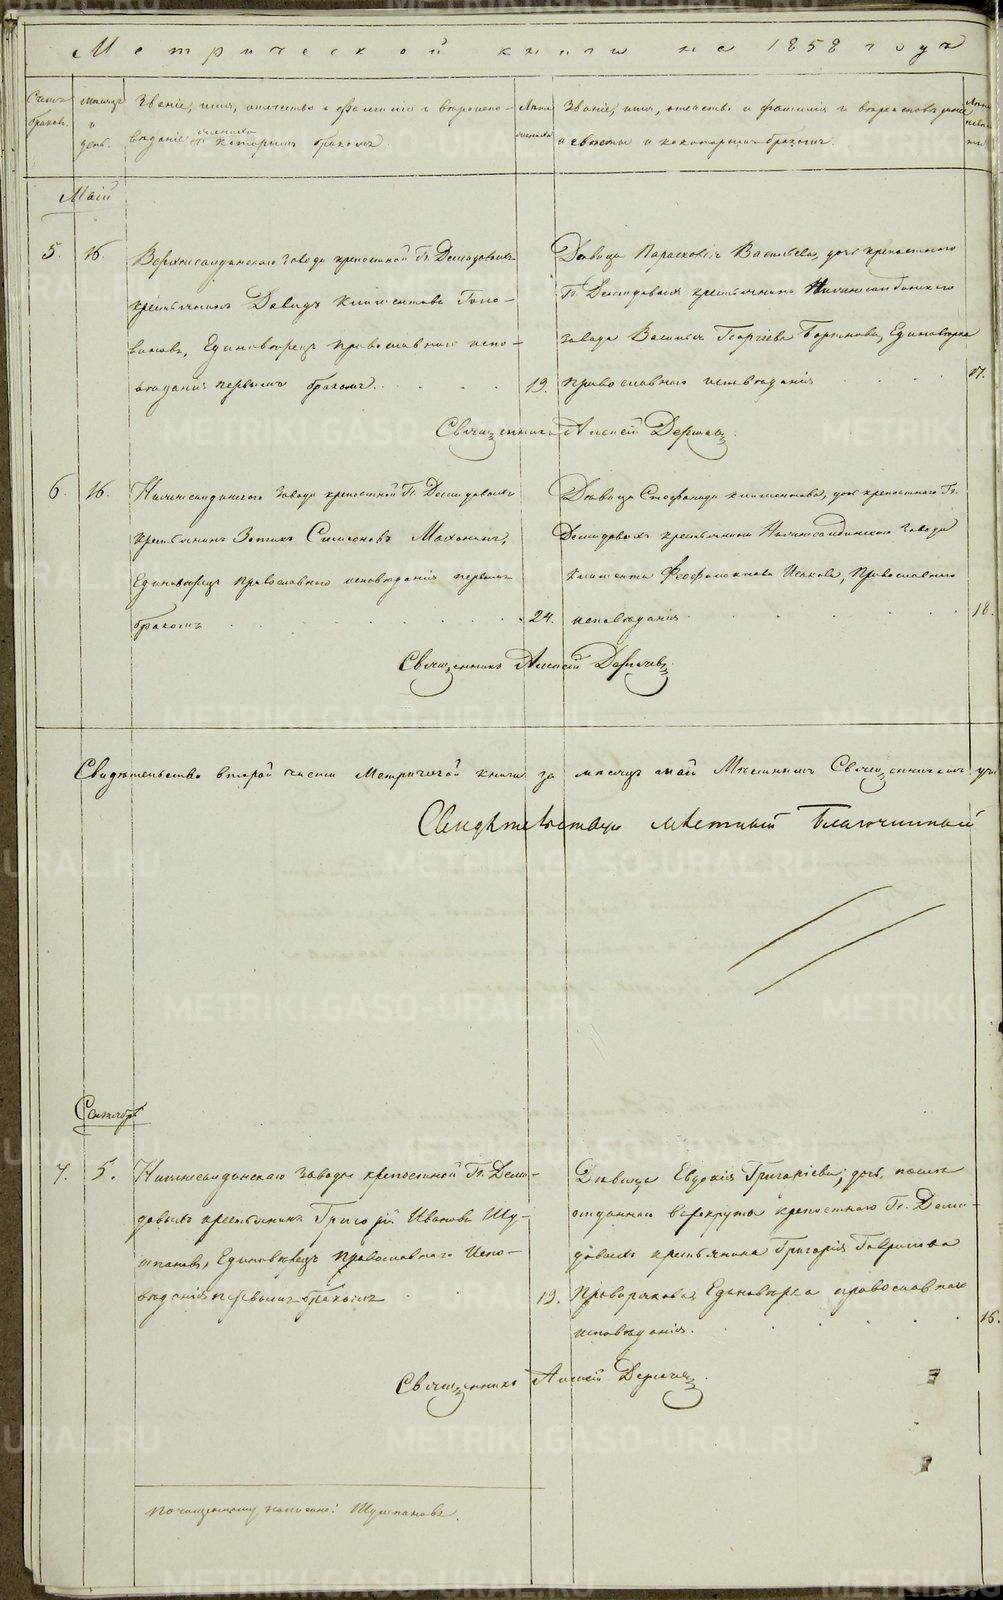 Метрической книги на 1858 годъ
Счетъ браковъ.
Мѣсяцъ и день.
Званіе, имя, отчество и фамилія и вѣроисповѣданіе жениха и которымъ бракомъ.
Лѣта жениха
Званіе, имя, отчество и фамилія и вѣроисповѣданіе невѣсты и которымъ бракомъ.
Лѣта невѣсты
Маій
5. 16. Верхнесалдинскаго завода крепостной Гг. Демидовыхъ
крестьянинъ Давидъ Климентовъ Голо-
вановъ, Единовѣрецъ православнаго испо-
вѣданія первымъ бракомъ. 19.
Дѣвица Параскевія Васильева, дочь крепостнаго
Гг. Демидовыхъ крестьянина Нижнесалдинскаго
завода Василья Георгіева, Единовѣрка
православнаго исповѣданія 17.
Священникъ Алексѣй
6. 16. Нижнесалдинскаго завода крепостной Гг. Демидовыхъ
крестьянинъ Зотикъ Симеоновъ Маханинъ,
Единовѣрецъ православнаго исповѣданія первымъ
бракомъ 24.
Дѣвица Стефанида Климентова, дочь крепостнаго Гг.
Демидовыхъ крестьянина Нижнесалдинскаго завода
Климента Феофилактова Исакова, Православнаго
исповѣданія. 18.
Священникъ Алексѣй
Свидѣтельство второй части Метрической книги за мѣсяцъ май Мѣстнымъ Священникомъ
Свидѣтельствую мѣстный Благочинный
Сентябрь
7. 5. Нижнесалдинскаго завода крепостной Гг. Деми-
довыхъ крестьянинъ Григорій Ивановъ Шу-
мпановъ, Единовѣрецъ православнаго Испо-
вѣданія первымъ бракомъ 19.
Дѣвица Евдокія Григоріева, дочь,
отданнаго в рекруты крепостнаго Гг. Деми-
довыхъ крестьянина Григорія Гаврилова
Единовѣрка православнаго
исповѣданія. 16.
Священникъ Алексѣй
По чищенному написано: Шумпановъ.
METRIKI.GASO-URAL.RU